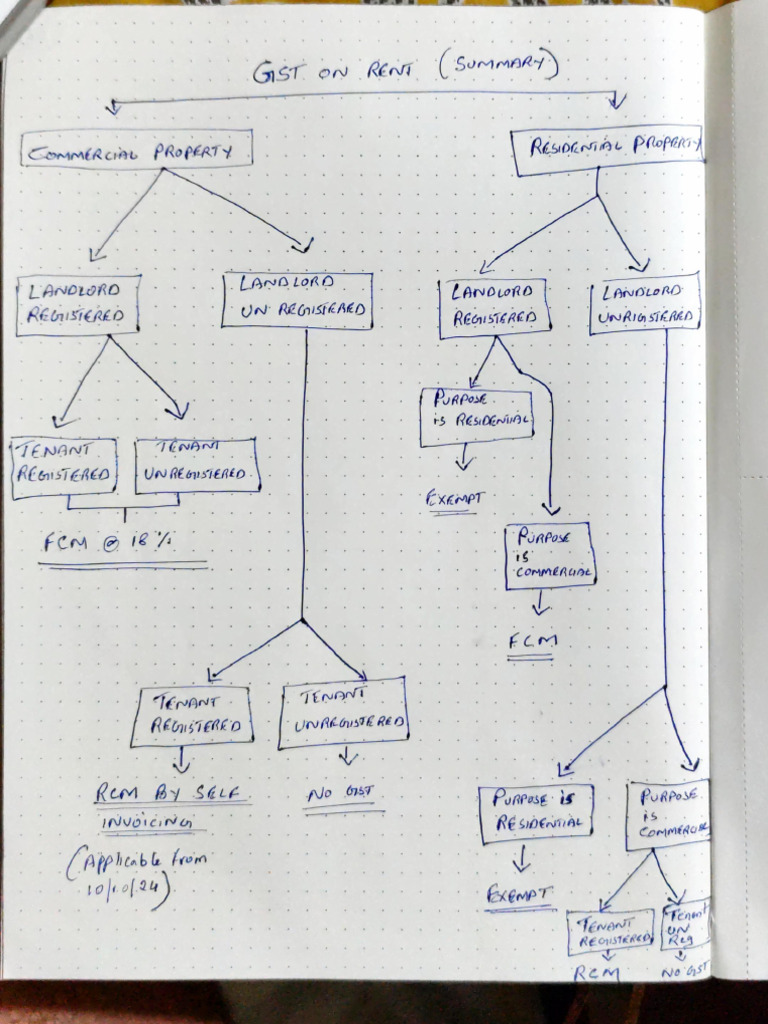 GST ON RENT (SUMMARY)
COMMERCIAL PROPERTY
RESIDENTIAL PROPERTY
LANDLORD
REGISTERED
LANDLORD
UN REGISTERED
LANDLORD
REGISTERED
LANDLORD
UNRIGISTERED
PURPOSE
is RESIDENTIAL
TENANT
REGISTERED
TENANT
UNREGISTERED
EXEMPT
FCM @ 18 %
PURPOSE
is
COMMERCIAL
FCM
TENANT
REGISTERED
TENANT
UNREGISTERED
RCM BY SELF
INVOICING
(Applicable from
10/10/24)
NO GST
PURPOSE is
RESIDENTIAL
PURPOSE
is
COMMERCIAL
EXEMPT
TENANT
REGISTERED
TENANT
UN
Reg
RCM
NO GST